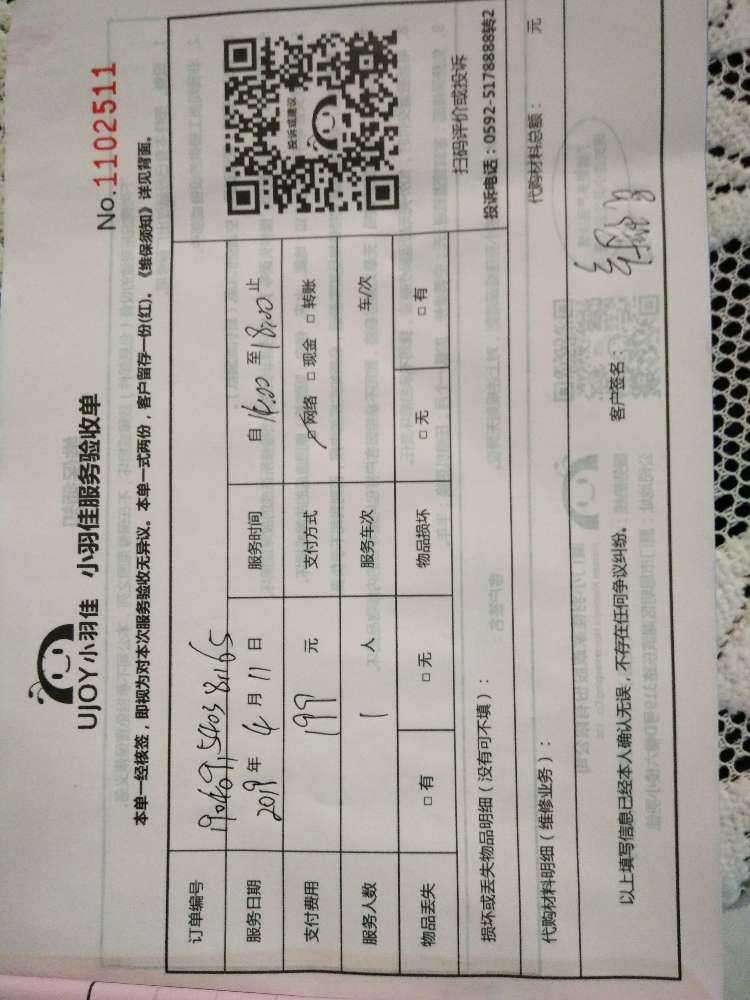 UJOY小羽佳 小羽佳服务验收单
No.1102511
本单一经核签，即视为对本次服务验收无异议。本单一式两份，客户留存一份(红)。《维保须知》详见背面。
订单编号
服务日期 2019 年 4 月 11 日 服务时间 自 16:00 至 18:00 止
支付费用 199 元 支付方式 □网络 □现金 □转账
服务人数 1 人 服务车次 车/次
物品丢失 □有 □无 物品损坏 □无 □有
投诉或建议
扫码评价或投诉
投诉电话：0592-5178888转2
损坏或丢失物品明细（没有可不填）：
代购材料明细（维修业务）： 代购材料总额： 元
以上填写信息已经本人确认无误，不存在任何争议纠纷。 客户签名：